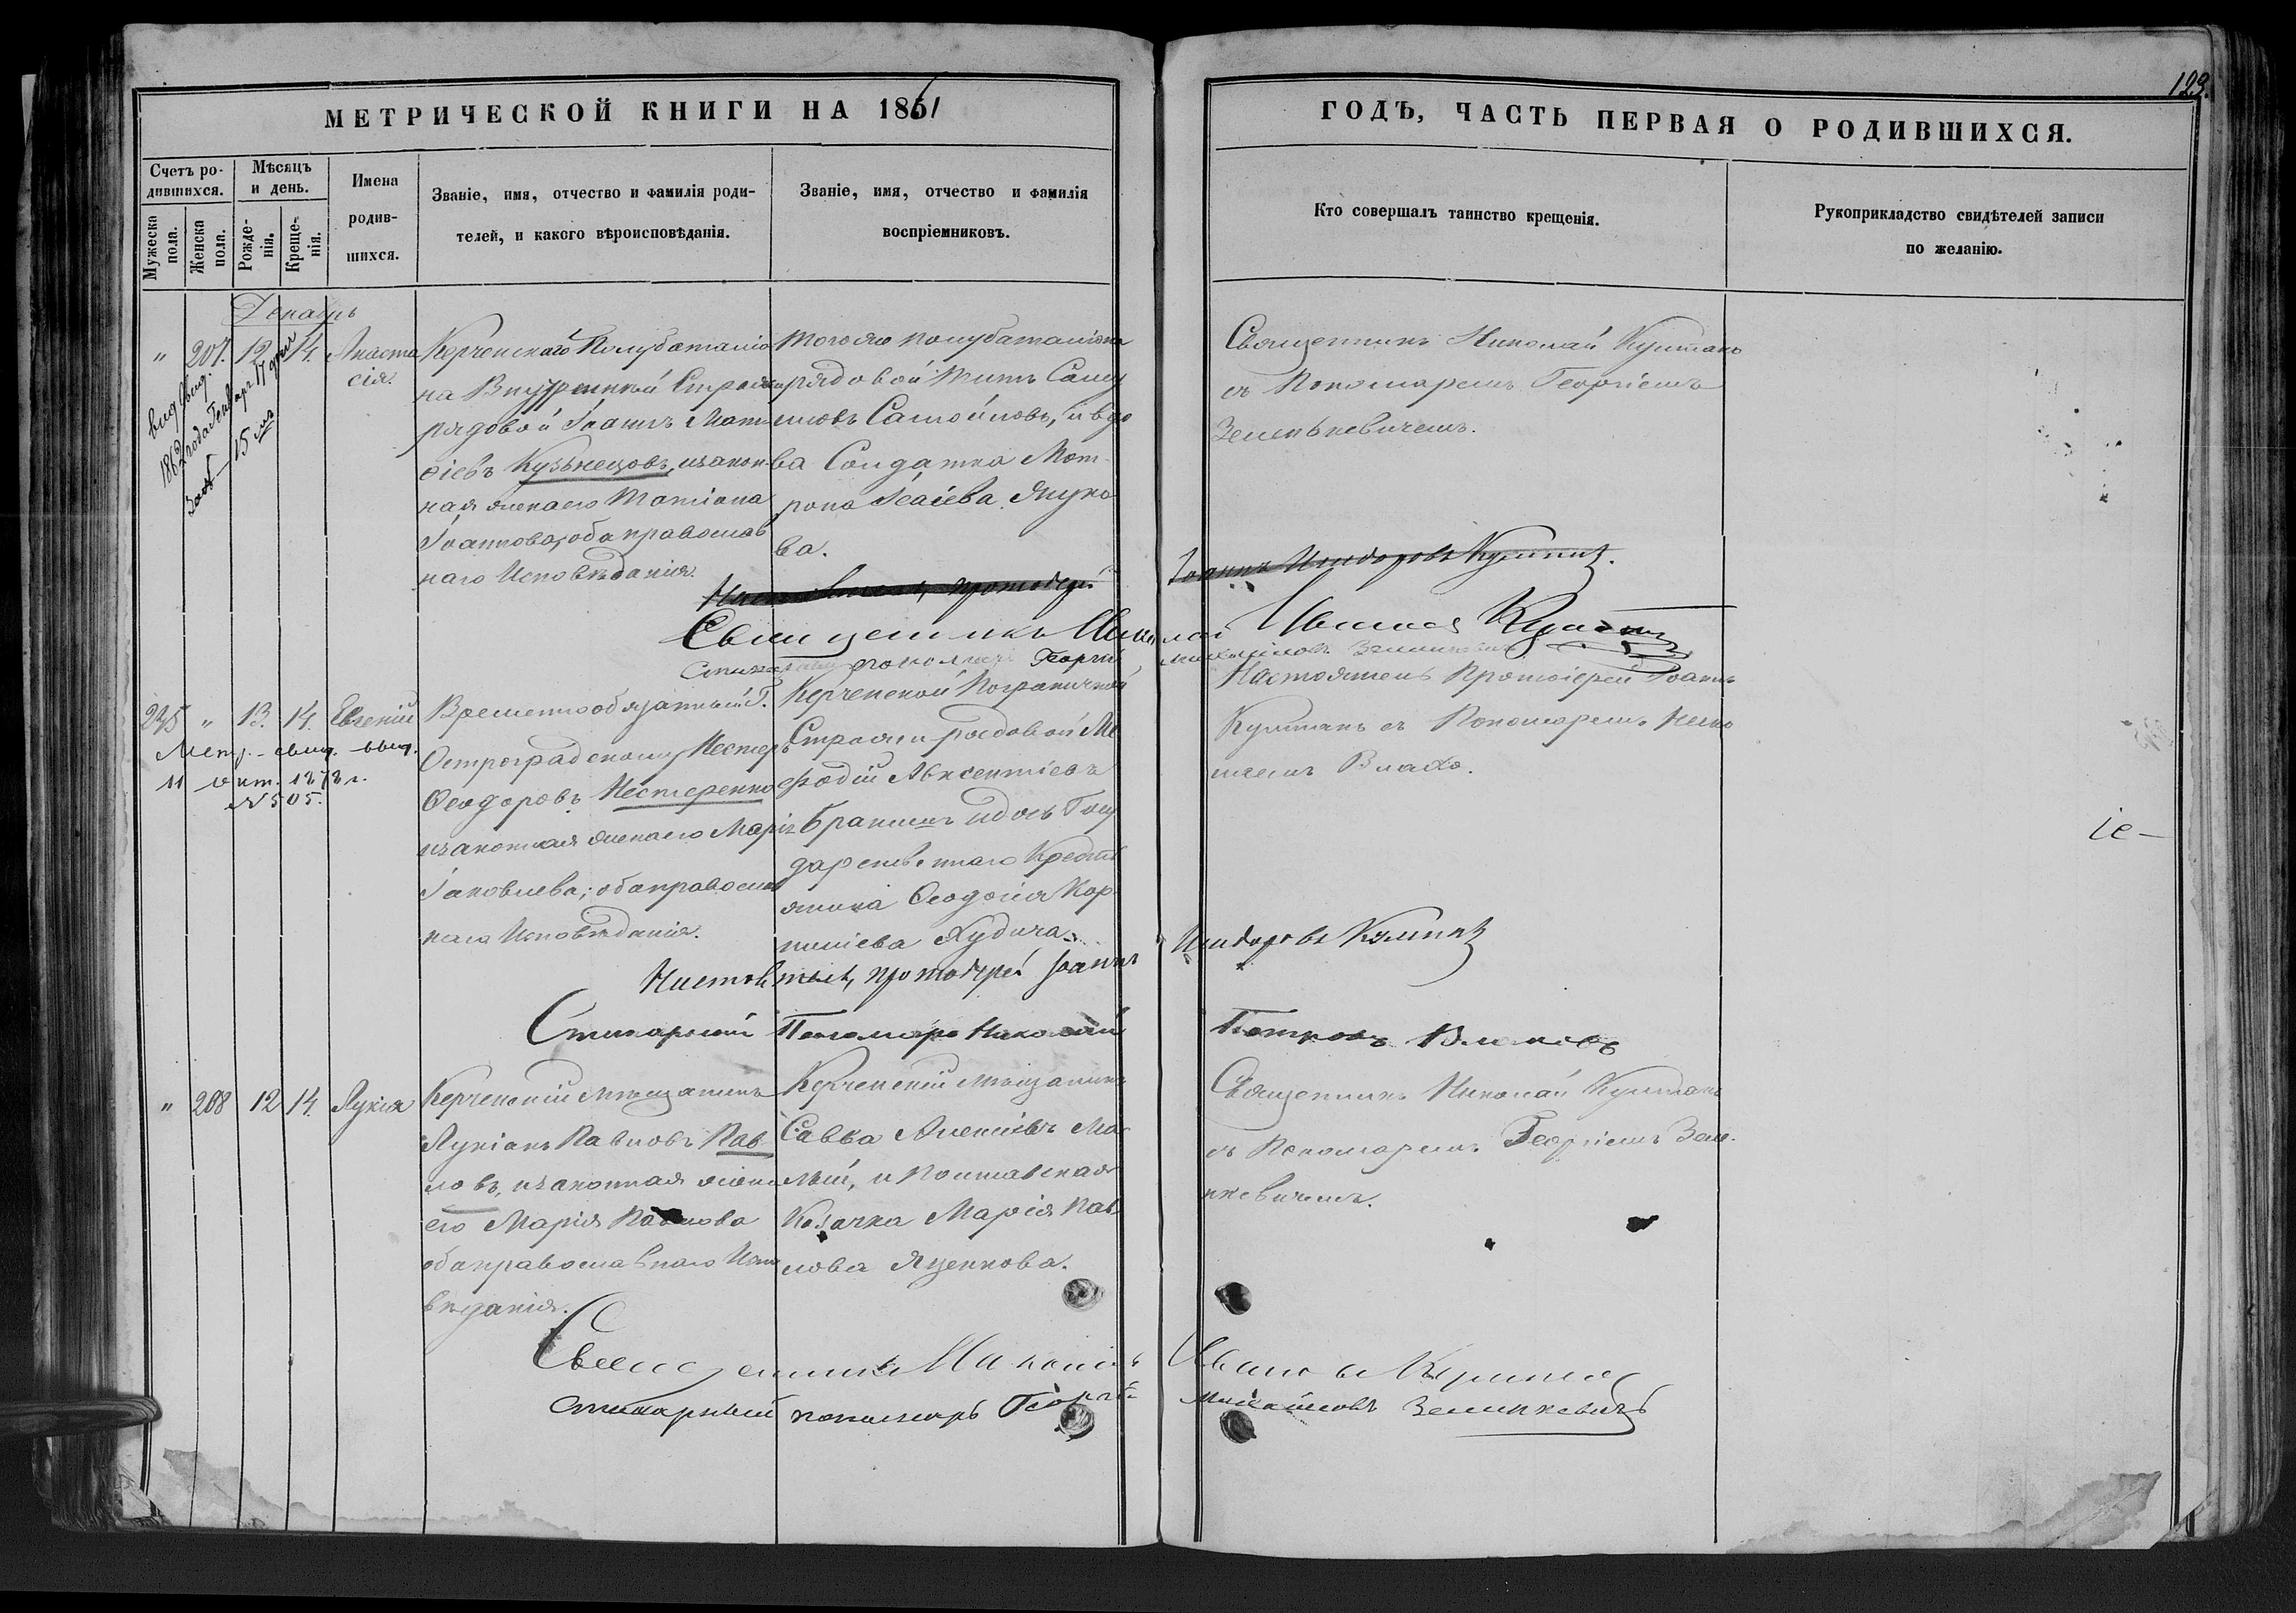 123.
МЕТРИЧЕСКОЙ КНИГИ НА 1861
ГОДЪ, ЧАСТЬ ПЕРВАЯ О РОДИВШИХСЯ.
Счетъ родившихся.
Мужеска пола.
Женска пола.
Мѣсяцъ и день.
Рожденія.
Крещенія.
Имена родившихся.
Званіе, имя, отчество и фамилія родителей, и какого вѣроисповѣданія.
Званіе, имя, отчество и фамилія воспріемниковъ.
Кто совершалъ таинство крещенія.
Рукоприкладство свидѣтелей записи по желанію.
Декабрь
" 207. 12 14.
Анаста
сія.
1862 года Генваря 17 дня
15
Керченскаго Полубаталіо
на Внутренней Стражи
рядовой Іоаннъ Мат
ѳіевъ Кузьнецовъ, изакон
ная жена его Татіана
Іоаннова, оба православ
наго Исповѣданія.
тогоже полубаталіона
рядовой Титъ Саму
иловъ Самойловъ, и вдо
ва Солдатка Мат
рона Исаіева Януко
ва.
Священникъ Николай Кушмакъ
съ Пономаремъ Георгіемъ
Зеленкевичемъ.
протоіерей
Іоаннъ Исидоровъ
Священникъ Николай
Ивановъ
пономарь Георгій
Михайловъ
235 " 13. 14. Евгеній
Метр. свид. выд.
11 окт. 1878 г.
№ 505.
Временнообязанный Г.
Остроградскому Нестеръ
Ѳеодоровъ Нестеренко
изаконная жена его Марія
Іаковлева; оба православ
наго Исповѣданія.
Керченской Пограничной
Стражи рядовой Ме
ѳодій Авксентіевъ
Бранинъ и дочь Госу
дарственнаго Крестья
нина Ѳеодосія Кор
ниліева Худича.
Настоятель Протоіерей Іоаннъ
Кушмакъ съ Пономаремъ Нико
лаемъ Влахо.
Настоятель, протоіерей Іоаннъ
Исидоровъ
Стихарный Пономарь Николай
Петровъ
" 208 12 14. Лукія
Керченскій мѣщанинъ
Лукіанъ Павловъ Пав
ловъ, изаконная жена
его Марія Павлова
оба православнаго Испо
вѣданія.
Керченскій мѣщанинъ
Савва Алексіевъ Ма
лый, и Полтавская
Козачка Марія Пав
лова Яценкова.
Священникъ Николай Кушмакъ
съ Пономаремъ Георгіемъ Зеле
нкевичемъ.
Священникъ Николай
Ивановъ
стихарный пономарь Георгій
Михайловъ Зеленкевичъ